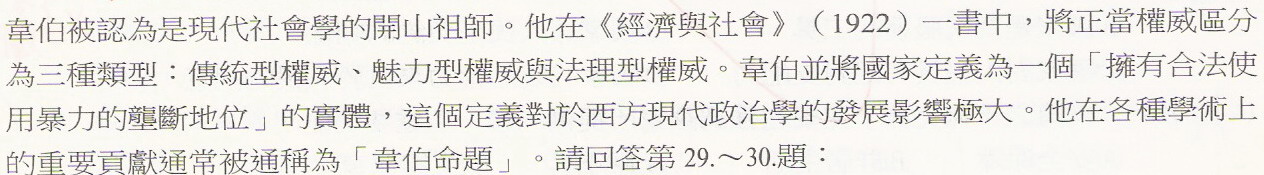 韋伯被認為是現代社會學的開山祖師。他在《經濟與社會》（1922）一書中，將正當權威區分
為三種類型：傳統型權威、魅力型權威與法理型權威。韋伯並將國家定義為一個「擁有合法使
用暴力的壟斷地位」的實體，這個定義對於西方現代政治學的發展影響極大。他在各種學術上
的重要貢獻通常被通稱為「韋伯命題」。請回答第 29.～30.題：